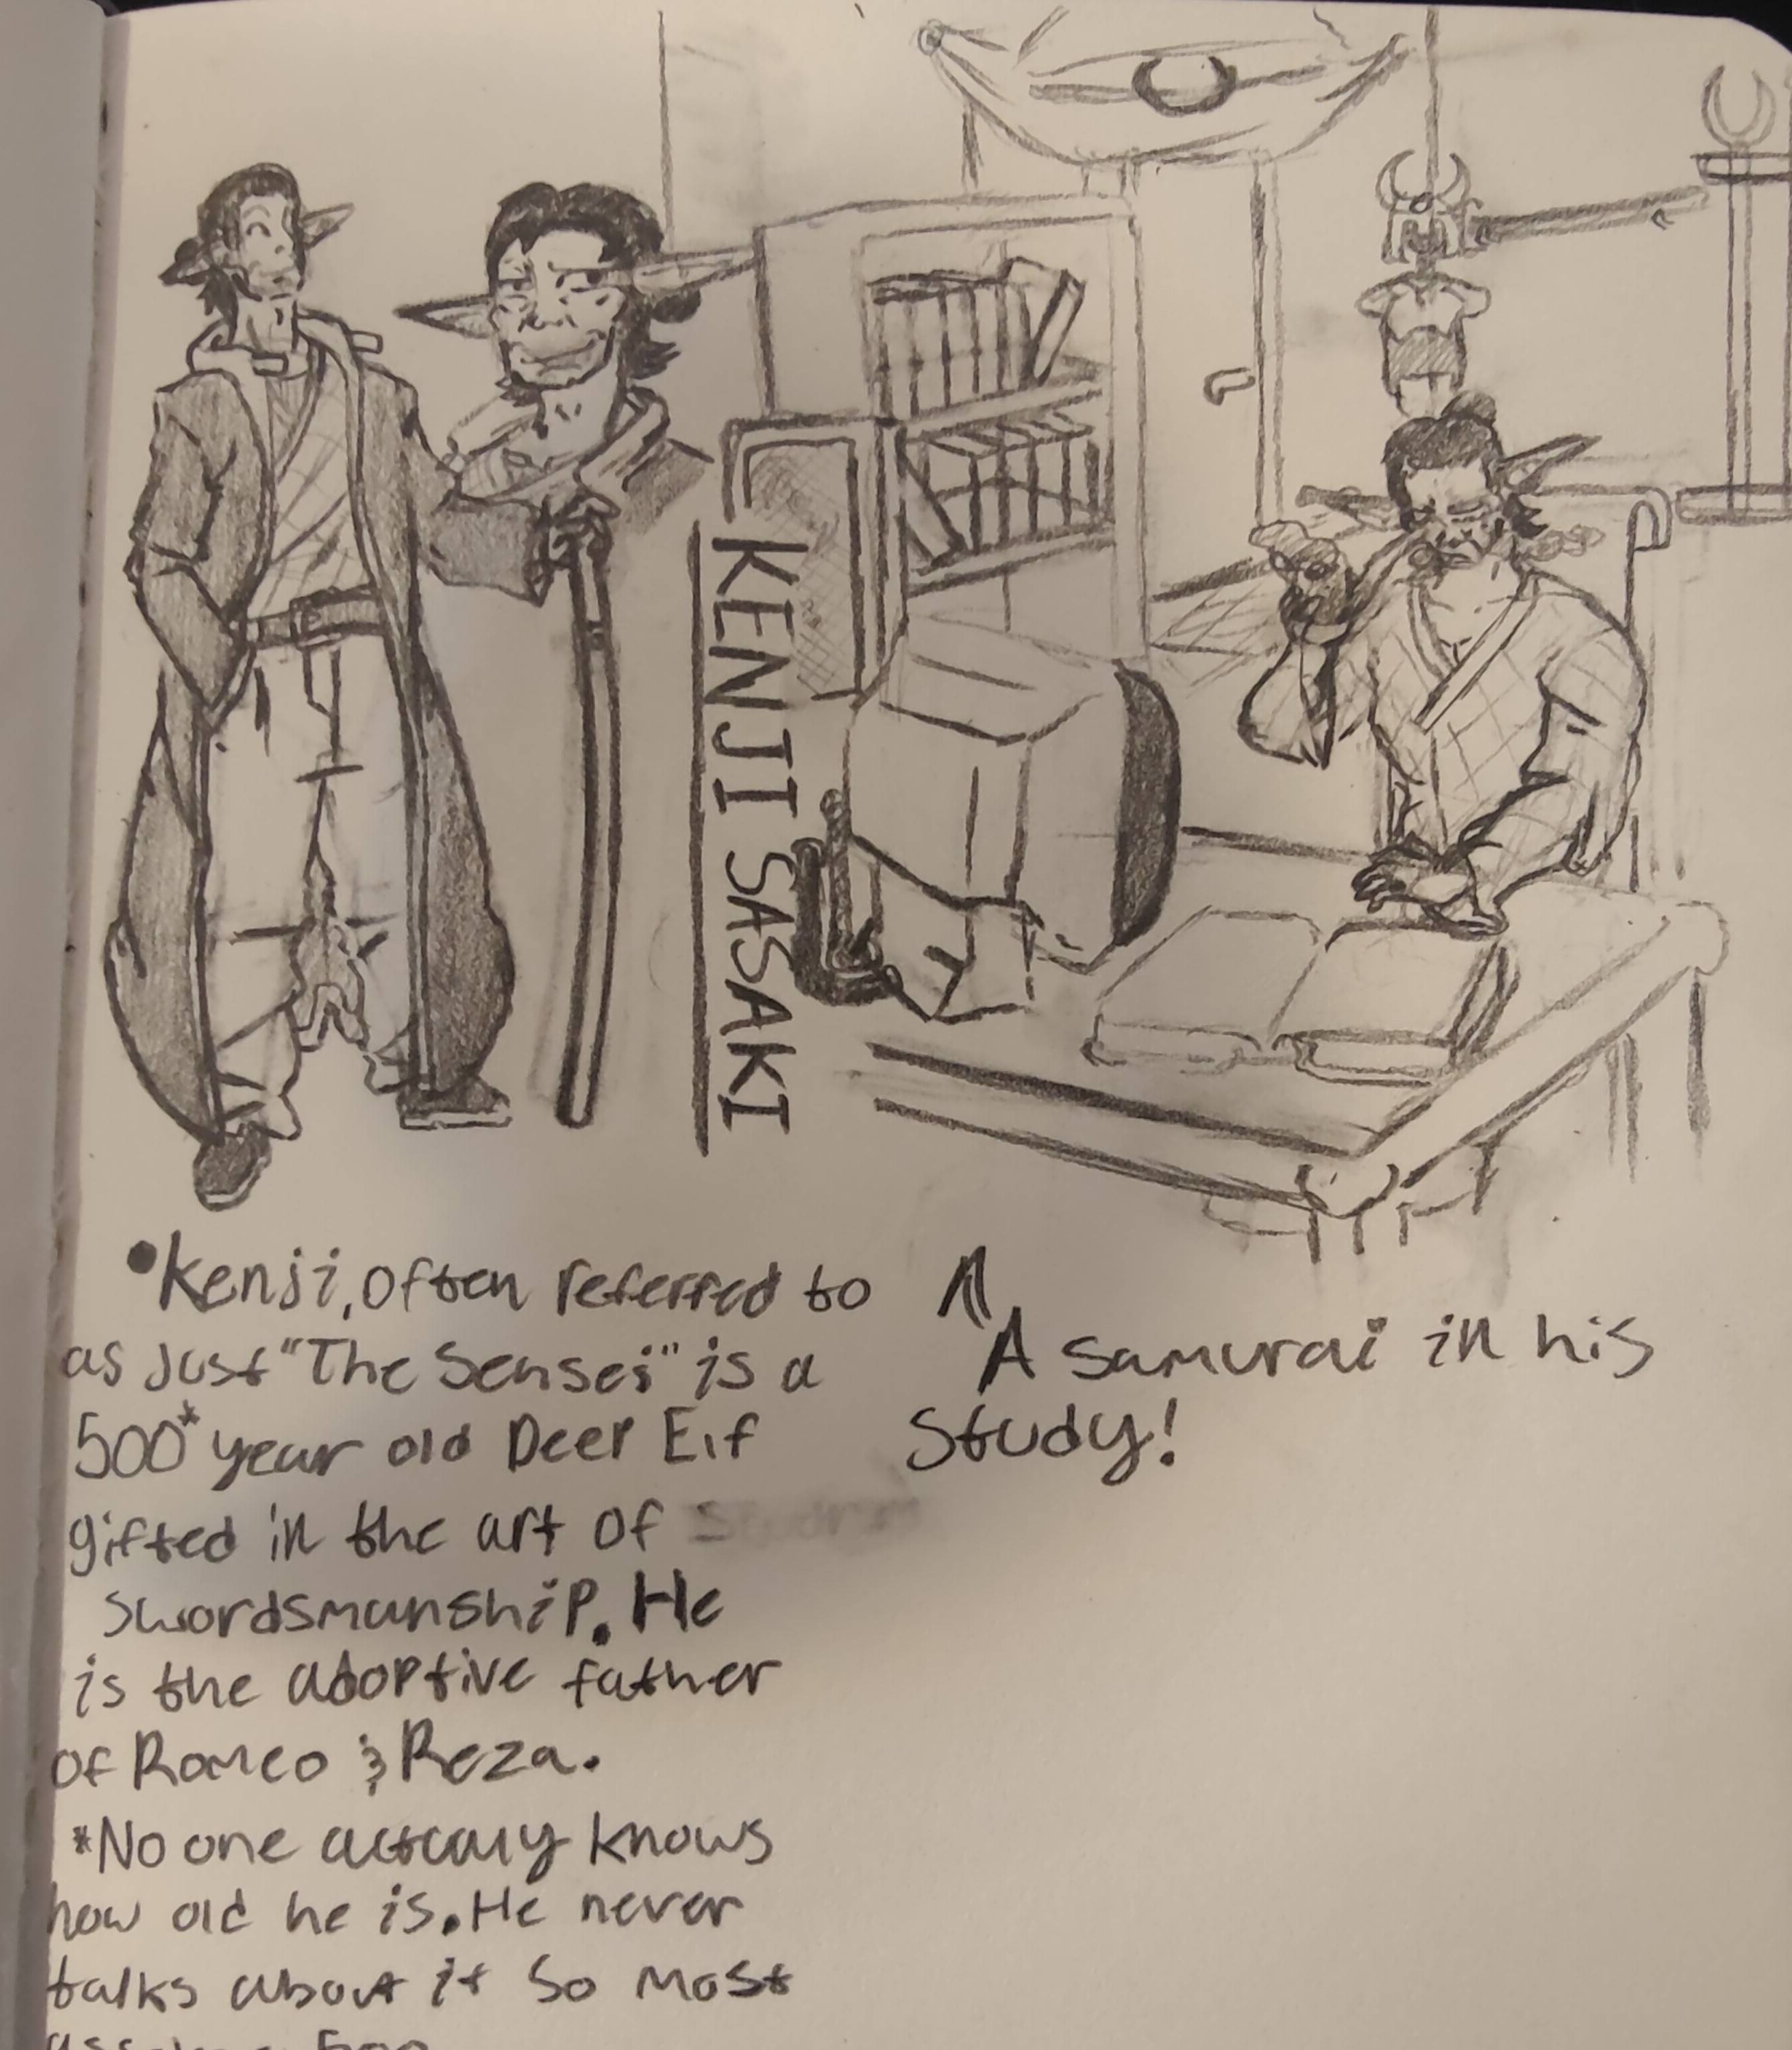 KENJI SASAKI
•Kenji, often referred to
as Just "The Sensei" is a
500* year old Deer Elf
gifted in the art of
Swordsmanship. He
is the adoptive father
of Romeo & Reza.
*No one actualy knows
how old he is. He never
talks about it so most
A Samurai in his
Study!